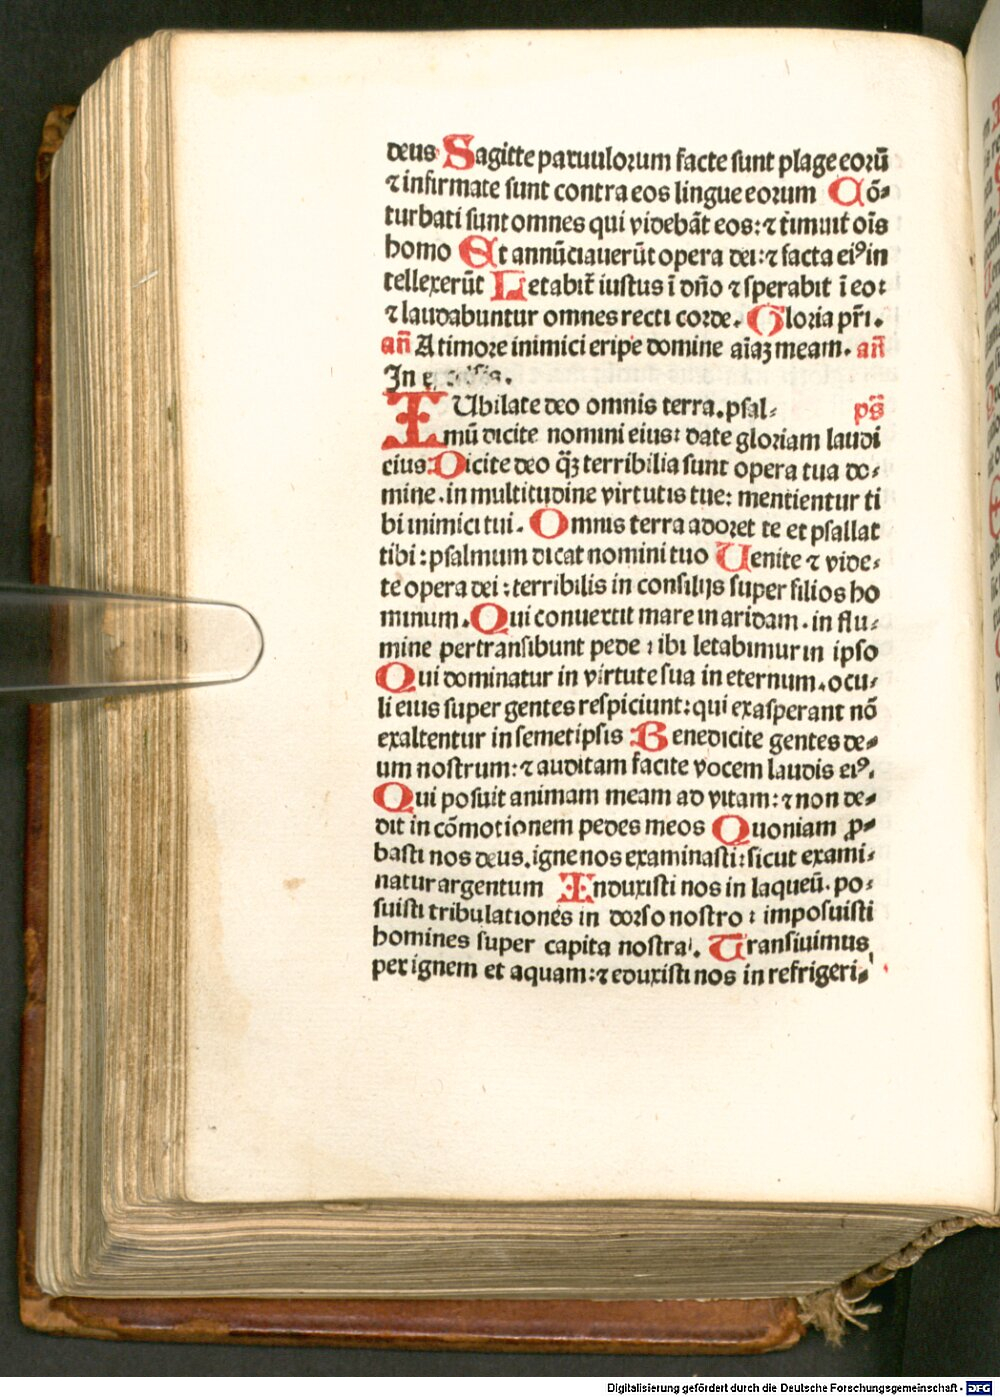 deus Sagitte paruulorum facte sunt plage eorū
⁊ infirmate sunt contra eos lingue eorum Cō-
turbati sunt omnes qui videbāt eos: ⁊ timuit̄ oīs
homo Et annūciauerūt opera dei: ⁊ facta eiꝰ in
tellexerūt Letabit̄ iustus ī dn̄o ⁊ sperabit ī eo:
⁊ laudabuntur omnes recti corde. Gloria pr̄i.
an̄ A timore inimici eripe domine aīaꝫ meam. an̄
In
IUbilate deo omnis terra. psal- ps̄
mū dicite nomini eius: date gloriam laudi
eius: Dicite deo q̄ꝫ terribilia sunt opera tua do-
mine. in multitudine virtutis tue: mentientur ti
bi inimici tui. Omnis terra adoret te et psallat
tibi: psalmum dicat nomini tuo Uenite ⁊ vide-
te opera dei: terribilis in consilijs super filios ho
minum. Qui conuertit mare in aridam. in flu-
mine pertransibunt pede: ibi letabimur in ipso
Qui dominatur in virtute sua in eternum. ocu-
li eius super gentes respiciunt: qui exasperant nō
exaltentur in semetipsis: Benedicite gentes de-
um nostrum: ⁊ auditam facite vocem laudis eiꝰ.
Qui posuit animam meam ad vitam: ⁊ non de-
dit in cōmotionem pedes meos Quoniam ꝓ-
basti nos deus. igne nos examinasti: sicut exami-
natur argentum Induxisti nos in laqueū. po-
suisti tribulationes in dorso nostro: imposuisti
homines super capita nostra. Transiuimus
per ignem et aquam: ⁊ eduxisti nos in refrigeri-
Digitalisierung gefördert durch die Deutsche Forschungsgemeinschaft - DFG